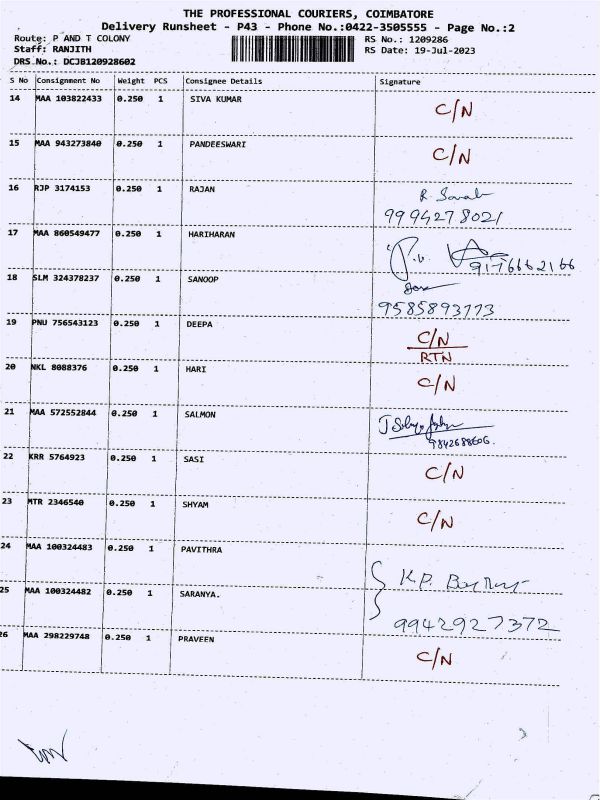 THE PROFESSIONAL COURIERS, COIMBATORE
Delivery Runsheet - P43 - Phone No.:0422-3505555 - Page No.:2
Route: P AND T COLONY RS No.: 1209286
Staff: RANJITH RS Date: 19-Jul-2023
DRS No.: DCJB120928602
S No Consignment No Weight PCS Consignee Details Signature
14 MAA 103822433 0.250 1 SIVA KUMAR C/N
15 MAA 943273840 0.250 1 PANDEESWARI C/N
16 RJP 3174153 0.250 1 RAJAN R.
9994278021
17 MAA 860549477 0.250 1 HARIHARAN
9176662166
18 SLM 324378237 0.250 1 SANOOP
9585893773
19 PNU 756543123 0.250 1 DEEPA C/N
RTN
20 NKL 8088376 0.250 1 HARI C/N
21 MAA 572552844 0.250 1 SALMON
9842688606.
22 KRR 5764923 0.250 1 SASI C/N
23 MTR 2346540 0.250 1 SHYAM C/N
24 MAA 100324483 0.250 1 PAVITHRA
K.P.
25 MAA 100324482 0.250 1 SARANYA.
9942927372
26 MAA 298229748 0.250 1 PRAVEEN C/N